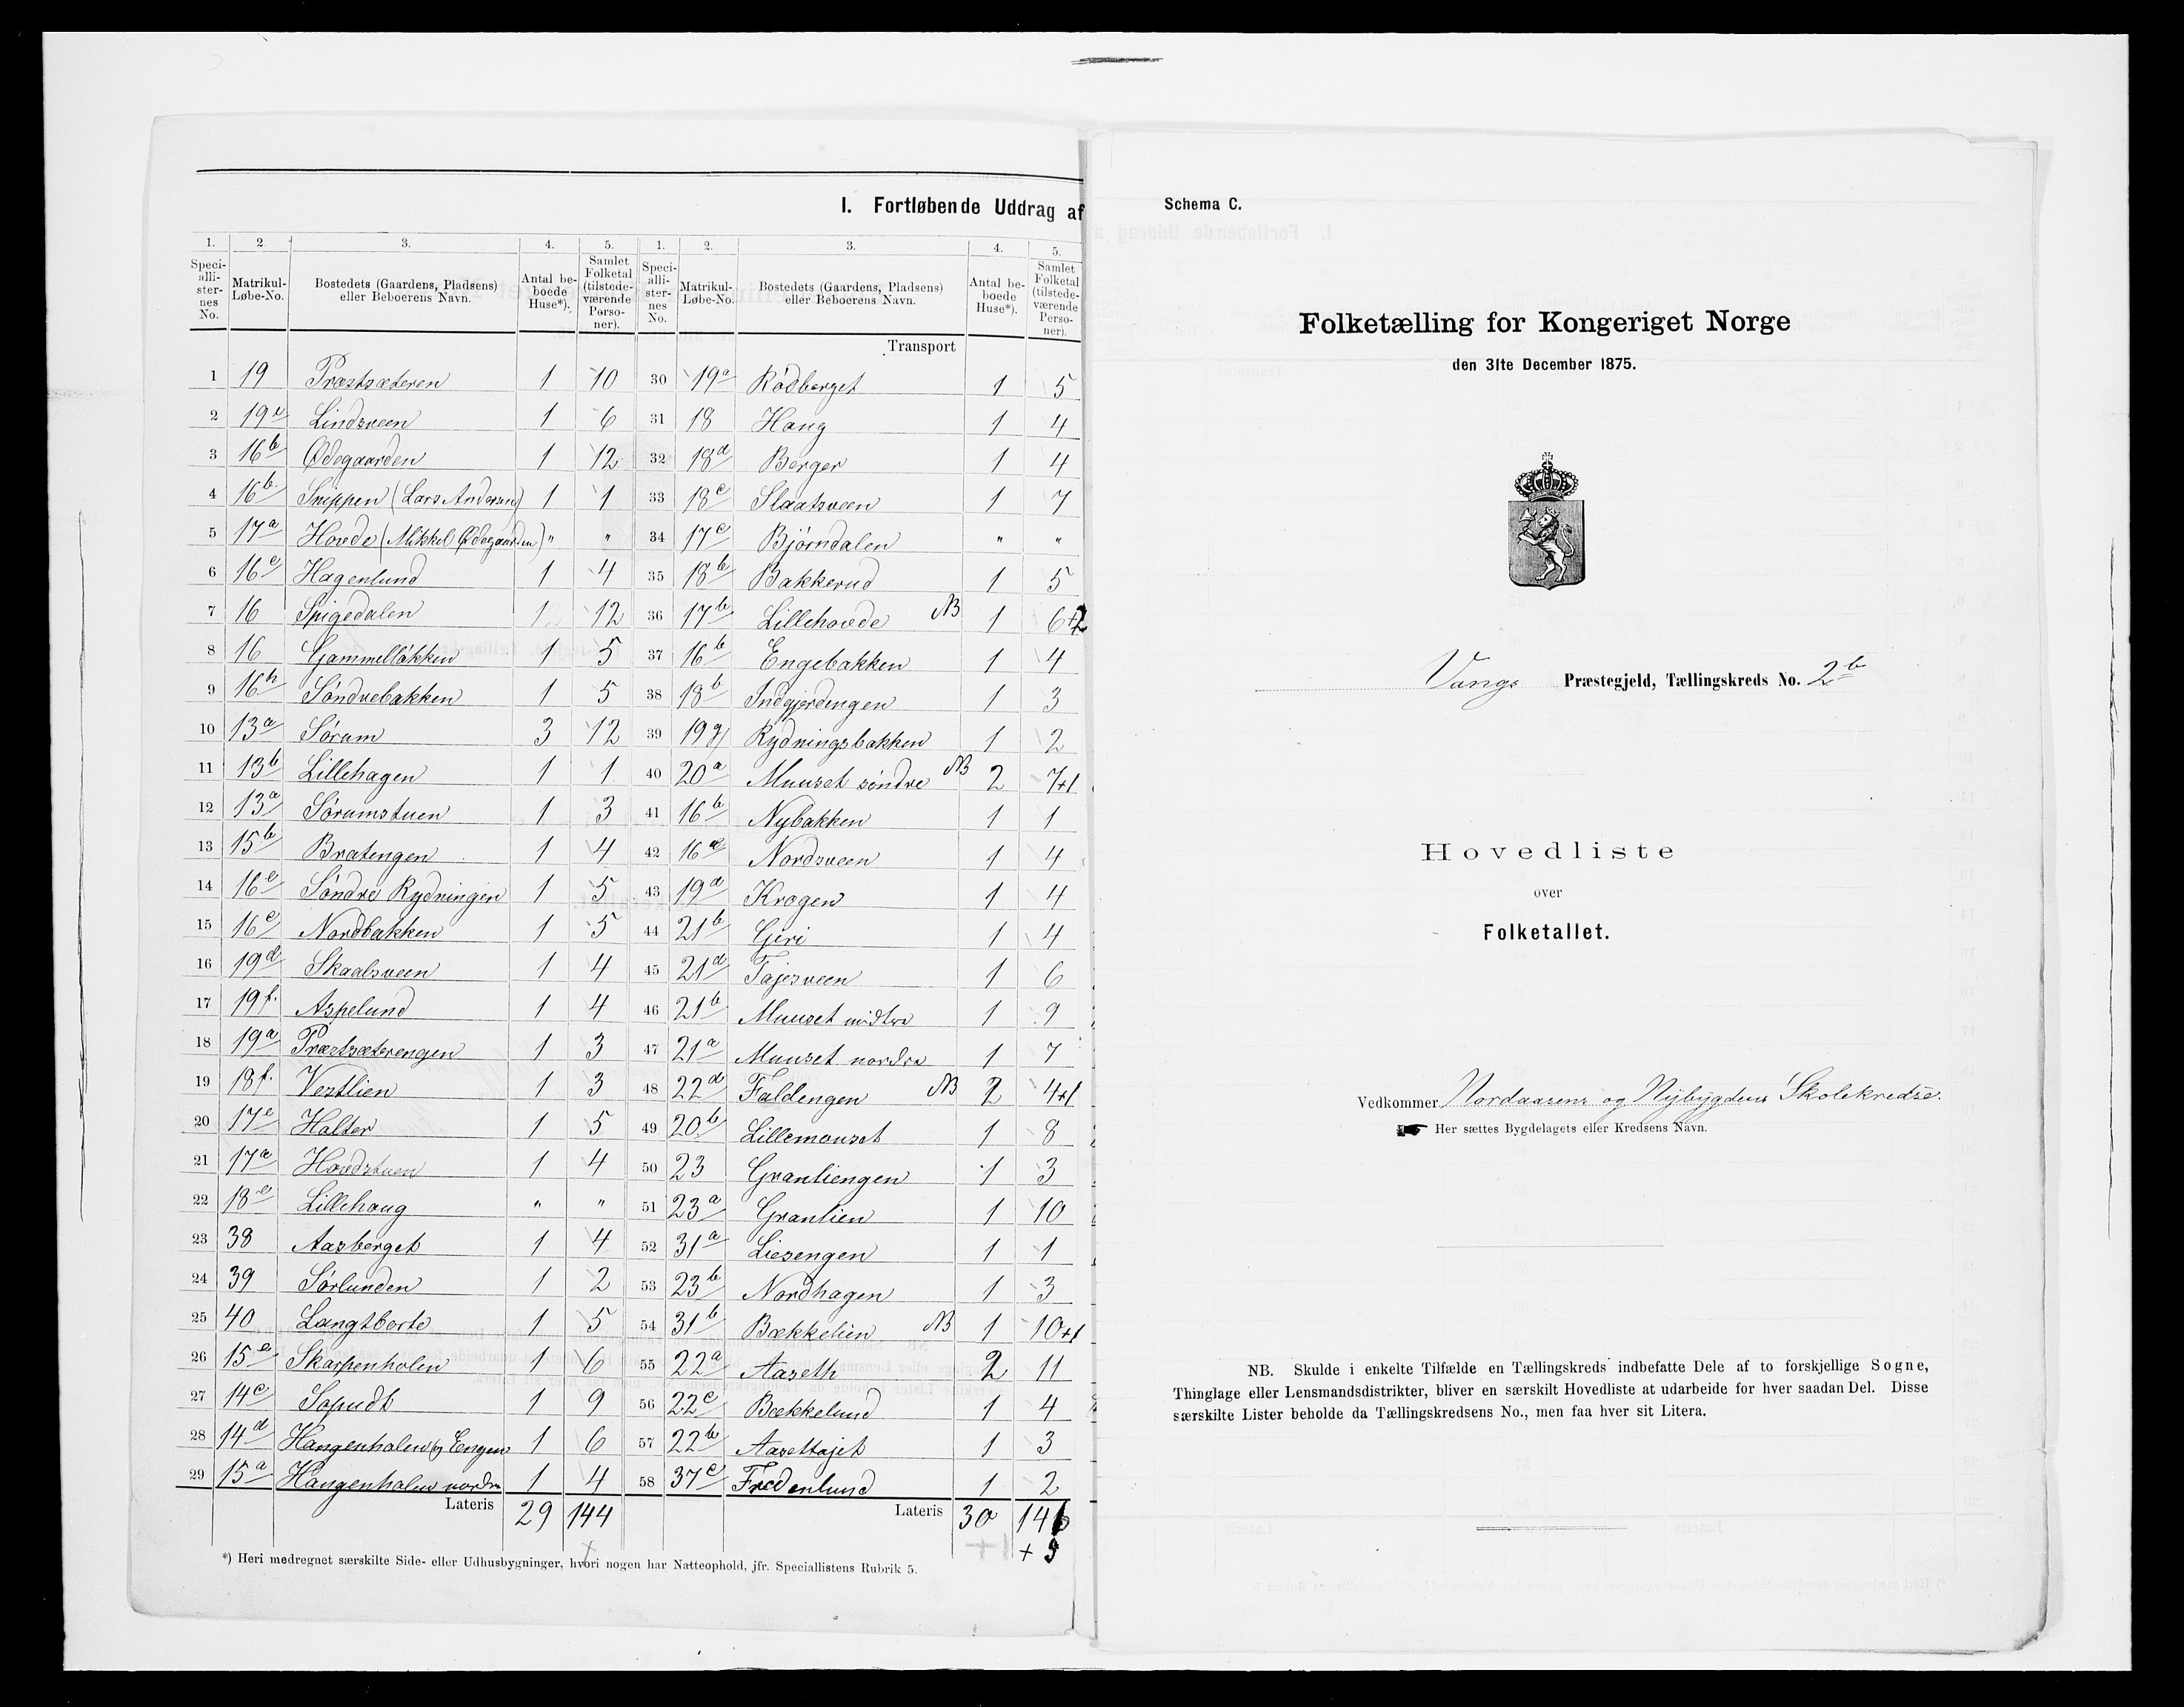 I. Fortløbende Uddrag af
1. 2. 3. 4. 5. 1. 2. 3. 4. 5.
Speciallisternes No. Matrikul-Løbe-No. Bostedets (Gaardens, Pladsens) eller Beboerens Navn. Antal beboede Huse*). Samlet Folketal (tilstedeværende Personer). Speciallisternes No. Matrikul-Løbe-No. Bostedets (Gaardens, Pladsens) eller Beboerens Navn. Antal beboede Huse*). Samlet Folketal (tilstedeværende Personer).
Transport
1 19 Præstsæteren 1 10 30 19a Rødberget 1 5
2 19e Lindsveen 1 6 31 18 Haug 1 4
3 16b Ødegaarden 1 12 32 18d Berger 1 4
4 16b. Snippen (Lars Andersen) 1 1 33 18c Slaatsveen 1 7
5 17a Hovde (Mikkel Ødegaarden) " " 34 17c Bjørndalen " "
6 16e Hagenlund 1 4 35 18b Bakkerud 1 5
7 16 Spigedalen 1 12 36 17b Lillehovde NB 1 6+2
8 16 Gammelløkken 1 5 37 16b Engebakken 1 4
9 16h Søndrebakken 1 5 38 18b Indgjerdengen 1 3
10 13a Sørum 3 12 39 19g Rydningsbakken 1 2
11 13b Lillehagen 1 1 40 20a Muuset søndre NB 2 7+1
12 13a Sørumstuen 1 3 41 16b Nybakken 1 1
13 15b Bratengen 1 4 42 16 Nordsveen 1 4
14 16e Søndre Rydningen 1 5 43 19d Krogen 1 4
15 16e Nordbakken 1 5 44 21b Gjeri 1 4
16 19d Skaalsveen 1 4 45 21d Tajesveen 1 6
17 19f. Aspelund 1 4 46 21b Muuset midtre 1 9
18 19a Præstsæterengen 1 3 47 21a Muuset nordre 1 7
19 18f. Vestlien 1 3 48 22d Faldengen NB 2 4+1
20 17e Halter 1 5 49 20b Lillemouset 1 8
21 17a Hovdstuen 1 4 50 23 Grantiengen 1 3
22 18e Lillehaug " " 51 23a Granlien 1 10
23 38 Aasberget 1 4 52 31a Liesengen 1 1
24 39 Sørlunden 1 2 53 23b Nordhagen 1 3
25 40 Langtborte 1 5 54 31b Bækkelien NB 1 10+1
26 15e Skarpenholen 1 6 55 22a Aaseth 2 11
27 14c Sopudt 1 9 56 22c Bækkelund 1 4
28 14d Haugenholen og Engen 1 6 57 22b Aasettajet 1 3
29 15a Haugenholen nordre 1 4 58 37c Fredenlund 1 2
Lateris 29 144 Lateris 30 146
+ 5
*) Heri medregnet særskilte Side- eller Udhusbygninger, hvori nogen har Natteophold, jfr. Speciallistens Rubrik 5.
Schema C.
Folketælling for Kongeriget Norge
den 31te December 1875.
Vangs Præstegjeld, Tællingskreds No. 2b
Hovedliste
over
Folketallet.
Vedkommer Nordaasens og Nybygdens Skolekredse.
Her sættes Bygdelagets eller Kredsens Navn.
NB. Skulde i enkelte Tilfælde en Tællingskreds indbefatte Dele af to forskjellige Sogne,
Thinglage eller Lensmandsdistrikter, bliver en særskilt Hovedliste at udarbeide for hver saadan Del. Disse
særskilte Lister beholde da Tællingskredsens No., men faa hver sit Litera.